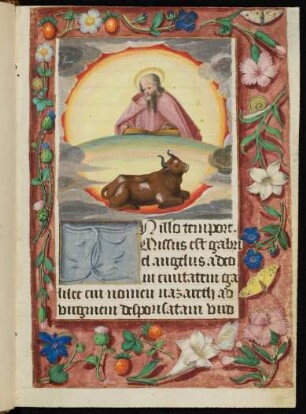 In illo tempore.
Missus est gabri
el angelus a deo
in civitatem ga
lilee cui nomen nazareth ad
virginem desponsatam viro